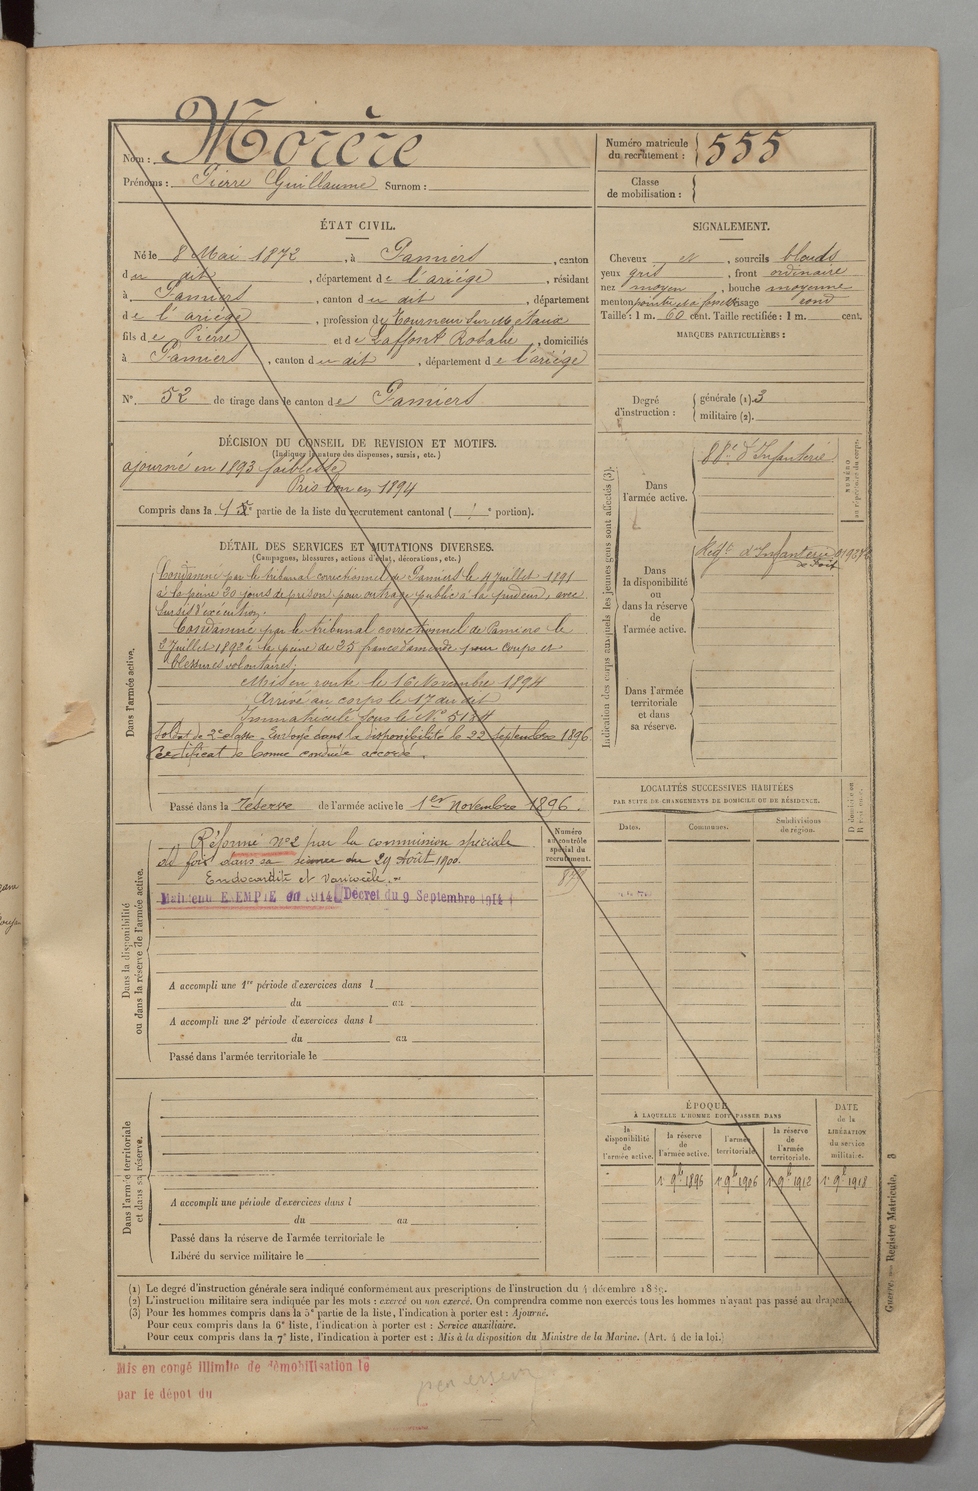 Nom : Morère
Prénoms : Pierre Guillaume Surnom :
Numéro matricule du recrutement : 555
Classe de mobilisation :
ÉTAT CIVIL.
Né le 8 Mai 1872, à Pamiers, canton
du dit, département de l'ariége, résidant
à Pamiers, canton du dit, département
de l'ariége, profession de Tourneur sur Métaux
fils de Pierre et de Laffont Rosalie, domiciliés
à Pamiers, canton du dit, département de l'ariége
N° 52 de tirage dans le canton de Pamiers
SIGNALEMENT.
Cheveux et, sourcils blonds
yeux gris, front ordinaire
nez moyen, bouche moyenne
menton pointu et à fossette visage rond
Taille : 1 m. 60 cent. Taille rectifiée : 1 m. cent.
MARQUES PARTICULIÈRES :
Degré d'instruction :
générale (1). 3
militaire (2).
DÉCISION DU CONSEIL DE REVISION ET MOTIFS.
(Indiquer la nature des dispenses, sursis, etc.)
ajourné en 1893 faiblesse
Pris bon en 1894
Compris dans la 1 partie de la liste du recrutement cantonal ( portion).
DÉTAIL DES SERVICES ET MUTATIONS DIVERSES.
(Campagnes, blessures, actions d'éclat, décorations, etc.)
Dans l'armée active.
Condamné par le tribunal correctionnel de Pamiers le 4 Juillet 1891
à la peine 30 jours de prison pour outrage public à la pudeur, avec
Sursis d'exécution.
Condamné par le tribunal correctionnel de Pamiers le
Juillet 1892 à la peine de 25 francs d'amende pour coups et
blessures volontaires.
Mis en route le 16 Novembre 1894
Arrivé au corps le 17 du dit
Immatriculé sous le N° 5184
Soldat de 2e classe. Envoyé dans la disponibilité le 22 septembre 1896.
Certificat de bonne conduite accordé.
Passé dans la réserve de l'armée active le 1er novembre 1896.
Indication des corps auxquels les jeunes gens sont affectés (3).
NUMÉRO au répertoire du corps.
Dans l'armée active.
88e d'Infanterie
Dans la disponibilité ou dans la réserve de l'armée active.
Régt d'Infanterie
de Foix
Dans l'armée territoriale et dans sa réserve.
Dans la disponibilité ou dans la réserve de l'armée active.
Réformé n°2 par la commission spéciale
de foix dans sa séance du 29 Août 1900.
Endocardite et Varicocèle.
Maintenu EXEMPTÉ en 1914 Décret du 9 Septembre 1914
Numéro au contrôle spécial du recrutement.
A accompli une 1re période d'exercices dans l
du au
A accompli une 2e période d'exercices dans l
du au
Passé dans l'armée territoriale le
LOCALITÉS SUCCESSIVES HABITÉES
PAR SUITE DE CHANGEMENTS DE DOMICILE OU DE RÉSIDENCE.
Dates. Communes. Subdivisions de région. D domicile R résidence.
Dans l'armée territoriale et dans sa réserve.
A accompli une période d'exercices dans l
du au
Passé dans la réserve de l'armée territoriale le
Libéré du service militaire le
ÉPOQUE
À LAQUELLE L'HOMME DOIT PASSER DANS
la disponibilité de l'armée active. la réserve de l'armée active. l'armée territoriale. la réserve de l'armée territoriale.
DATE de la LIBÉRATION du service militaire.
1er 9bre 1896 1er 9bre 1906 1er 9bre 1912 1er 9bre 1918
Guerre. — Registre Matricule. 3
(1) Le degré d'instruction générale sera indiqué conformément aux prescriptions de l'instruction du 4 décembre 1889.
(2) L'instruction militaire sera indiquée par les mots : exercé ou non exercé. On comprendra comme non exercés tous les hommes n'ayant pas passé au drapeau.
(3) Pour les hommes compris dans la 5e partie de la liste, l'indication à porter est : Ajourné.
Pour ceux compris dans la 6e liste, l'indication à porter est : Service auxiliaire.
Pour ceux compris dans la 7e liste, l'indication à porter est : Mis à la disposition du Ministre de la Marine. (Art. 4 de la loi.)
Mis en congé illimité de démobilisation le
par le dépot du